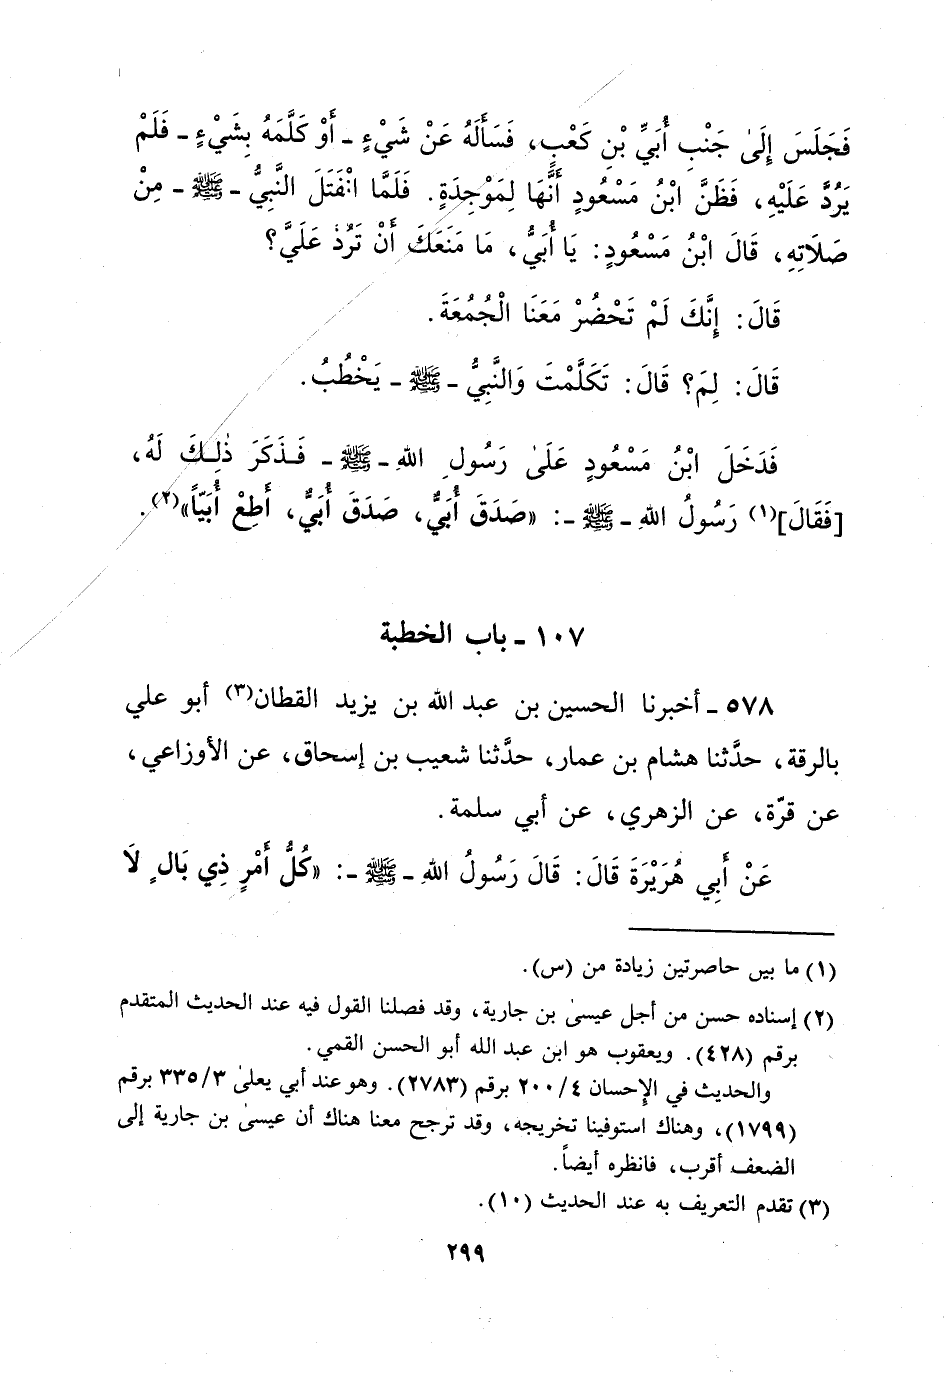 فَجَلَسَ إِلَىٰ جَنْبِ أُبَيِّ بْنِ كَعْبٍ، فَسَأَلَهُ عَنْ شَيْءٍ ـ أَوْ كَلَّمَهُ بِشَيْءٍ ـ فَلَمْ
يَرُدَّ عَلَيْهِ، فَظَنَّ ابْنُ مَسْعُودٍ أَنَّهَا لِمَوْجِدَةٍ. فَلَمَّا انْفَتَلَ النَّبِيُّ ـ ﷺ ـ مِنْ
صَلَاتِهِ، قَالَ ابْنُ مَسْعُودٍ: يَا أُبَيُّ، مَا مَنَعَكَ أَنْ تَرُدَّ عَلَيَّ؟
قَالَ: إِنَّكَ لَمْ تَحْضُرْ مَعَنَا الْجُمُعَةَ.
قَالَ: لِمَ؟ قَالَ: تَكَلَّمْتَ وَالنَّبِيُّ ـ ﷺ ـ يَخْطُبُ.
فَدَخَلَ ابْنُ مَسْعُودٍ عَلَىٰ رَسُولِ اللهِ ـ ﷺ ـ فَذَكَرَ ذٰلِكَ لَهُ،
[فَقَالَ](١) رَسُولُ اللهِ ـ ﷺ ـ: «صَدَقَ أُبَيٌّ، صَدَقَ أُبَيٌّ، أَطِعْ أُبَيّاً»(٢).
١٠٧ ـ باب الخطبة
٥٧٨ ـ أخبرنا الحسين بن عبد الله بن يزيد القطان(٣) أبو علي
بالرقة، حدَّثنا هشام بن عمار، حدَّثنا شعيب بن إسحاق، عن الأوزاعي،
عن قرّة، عن الزهري، عن أبي سلمة.
عَنْ أَبِي هُرَيْرَةَ قَالَ: قَالَ رَسُولُ اللهِ ـ ﷺ ـ: «كُلُّ أَمْرٍ ذِي بَالٍ لَا
(١) ما بين حاصرتين زيادة من (س).
(٢) إسناده حسن من أجل عيسىٰ بن جارية، وقد فصلنا القول فيه عند الحديث المتقدم
برقم (٤٢٨). ويعقوب هو ابن عبد الله أبو الحسن القمي.
والحديث في الإحسان ٤/٢٠٠ برقم (٢٧٨٣). وهو عند أبي يعلىٰ ٣/٣٣٥ برقم
(١٧٩٩)، وهناك استوفينا تخريجه، وقد ترجح معنا هناك أن عيسىٰ بن جارية إلى
الضعف أقرب، فانظره أيضاً.
(٣) تقدم التعريف به عند الحديث (١٠).
٢٩٩